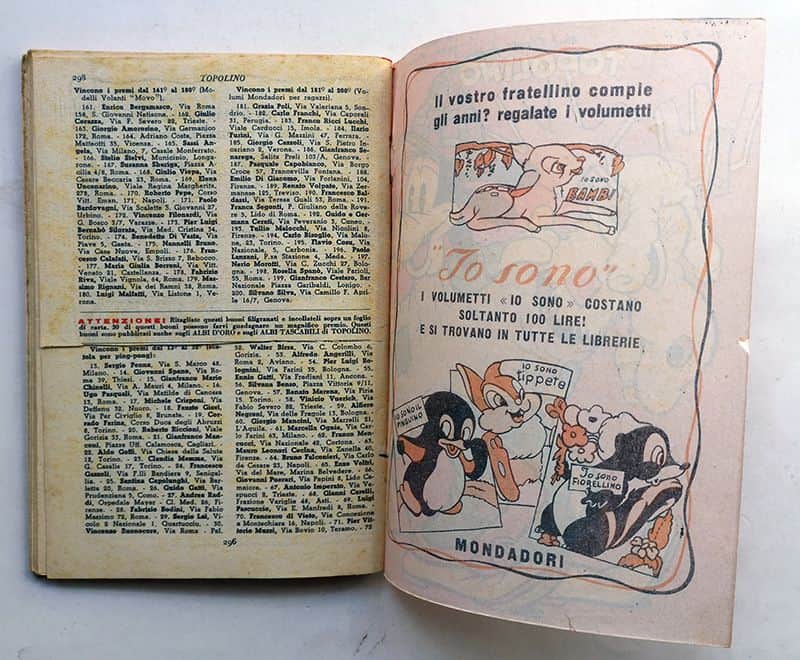 298 TOPOLINO
Vincono i premi dal 141° al 180° (Mo-
delli Volanti "Movo").
161. Enrico Bergamasco, Via Roma
158, S. Giovanni Natisone. - 162. Giulio
Corazza, Via F. Severo 82, Trieste. -
163. Giorgio Amorosino, Via Germanico
172, Roma. - 164. Adriano Costa, Piazza
Matteotti 35, Vicenza. - 165. Sassi An-
gelo, Via Milano, 7, Casale Monferrato.
- 166. Stelio Stelvi, Municipio, Longa-
rone. - 167. Susanna Sburigo, Piazza A-
cilia 4/8, Roma. - 168. Giulio Viepa, Via
Cesare Beccaria 23, Roma. - 169. Elena
Uncanarino, Viale Regina Margherita,
278, Roma. - 170. Roberto Pepe, Corso
Vitt. Eman. 371, Napoli. - 171. Paolo
Bardovagni, Via Scalette S. Giovanni 27,
Urbino. - 172. Vincenzo Filenardi, Via
G. Bosco 3/7, Varazze. - 173. Pier Luigi
Bernabò Silorata, Via Med. Cristina 34,
Torino. - 174. Benedetto Di Vasta, Via
Piave 5, Gaeta. - 175. Nannelli Bruno,
Via Case Nuove, Empoli. - 176. Fran-
cesco Calafati, Via S. Brizzo 7, Rebocco.
- 177. Maria Giulia Borroni, Via Vitt.
Veneto 21, Castellanza. - 178. Fabrizio
Riva, Viale Vignola, 64, Roma. 179. Mas-
simo Rignani, Via dei Ramni 38, Roma.
180. Luigi Malfatti, Via Listone 1, Ve-
rona.
Vincono i premi dal 181° al 200° (Vo-
lumi Mondadori per ragazzi).
181. Grazia Poli, Via Valeriana 5, Son-
drio. - 182. Carlo Franchi, Via Caporali
31, Perugia. - 183. Franco Ricci Lucchi,
Viale Carducci 15, Imola. - 184. Ilario
Fuzini, Via G. Mazzini 47, Ferrara. -
185. Giorgio Cazzoli, Via S. Pietro In-
cariano 2, Verona. - 186. Gianfranco Se-
narega, Salita Preli 103/A, Genova. -
187. Pasquale Capobianco, Via Borgo
Croce 57, Francavilla Fontana. - 188.
Emilio Di Giacomo, Via Forlanini, 104,
Firenze. - 189. Renato Volpato, Via Zer-
manese 125, Treviso. 190. Francesco Bal-
dazzi, Via Teresa Guali 53, Roma. - 191.
Franca Segonti, P. Giuliano della Rove-
re 5, Lido di Roma. - 192. Guido e Ger-
mana Ceruti, Via Peveranio 3, Cuneo. -
193. Tullio Malocchi, Via Nionlini 8,
Firenze. - 194. Carlo Bisoglio, Via Malta-
na, 23, Torino. - 195. Flavio Cozu, Via
Nazionale, 5, Carbonia. - 196. Paolo
Lanzani, P.za Stazione 4, Meda. - 197.
Nerio Morotti, Via C. Zucchi 27, Bolo-
gna. - 198. Rosella Spanò, Viale Parioli,
55, Roma. - 199. Gianfranco Cestaro, Bar
Nazionale Piazza Garibaldi, Lonigo. -
200. Silvano Silva, Via Camillo F. Apri-
le 16/7, Genova.
ATTENZIONE! Ritagliate questi buoni filigranati e incollateli sopra un foglio
di carta. 30 di questi buoni possono farvi guadagnare un magnifico premio. Questi
buoni sono pubblicati anche sugli ALBI D'ORO e sugli ALBI TASCABILI di TOPOLINO.
Vincono i premi dal 13° al
tola per ping-pong):
15. Sergio Penna, Via S. Marco 48,
Milano. - 14. Giovanni Spana, Via Ro-
ma 39, Thiesi. - 15. Gianfranco Mario
Chinelli, Via A. Mauri 4, Milano. - 16.
Ugo Pasquali, Via Matilde di Canossa
13, Roma. - 17. Michele Crisponi, Via
Deffenu 32, Nuoro. - 18. Fausto Giosi,
Via Per Civiglio 6, Brunate. - 19. Cor-
rado Farina, Corso Duca degli Abruzzi
8, Torino. - 20. Roberto Riccioni, Via
Gorizia 53, Roma. - 21. Gianfranco Man-
coni, Piazza Uff. Calamosca, Cagliari. -
22. Aldo Goffi, Via Chiese della Salute
12, Torino. - 23. Claudio Momma, Via
G. Casalis 17, Torino. - 24. Francesco
Casaoli, Via F.lli Bandiera 9, Senigal-
lia. - 25. Santina Capolunghi, Via Bar-
letta 20, Roma. - 26. Guido Gatti, Via
Prudenziana 5, Como. - 27. Andrea Rad-
di, Ospedale Mayer - Cl. Med. 26, Fi-
renze. - 28. Fabrizio Bodini, Via Fabio
Massimo 72, Roma. - 29. Sergio Lai, Vi-
colo 2 Nazionale 1, Quartuccio. - 30.
Vincenzo Buonocore, Via Roma - Pal.
52. Walter Birsa, Via C. Colombo 6,
Gorizia. - 53. Alfredo Angerilli, Via
Roma 2, Aviano. - 54. Pier Luigi Bo-
lognini, Via Farini 35, Bologna. - 55.
Ennio Gatti, Via Frediani 11, Ancona. -
56. Silvana Benso, Piazza Vittoria 9/11,
Genova. - 57. Renato Marena, Via Piria
15, Torino. - 58. Vinicio Vuerich, Via
Fabio Severo 88, Trieste. - 59. Alfiero
Negroni, Via delle Fragole 13, Bologna.
- 60. Giorgio Mancini, Via Marrelli 21,
L'Aquila. - 61. Marcella Ogaia, Via Car-
lo Farini 63, Milano. - 62. Franco Men-
cucci, Via Nazionale 42, Cortona. - 63.
Mauro Leonori Cecina, Via Zanella 40,
Firenze. - 64. Bruno Falconieri, Via Carlo
da Cesare 23, Napoli. - 65. Enzo Veliti,
Via del Mare, Marina Belvedere. - 66.
Giovanni Puerari, Via Papini 8, Lido Ca-
maiore. - 67. Antonio Imperato, Via Ve-
spucci 2, Trieste. - 68. Gianni Carelli,
Frazione Variglie 44, Asti. - 69. Luigi
Pascuccio, Via E. Manfredi 8, Roma. -
70. Francesco di Vieto, Via Concezione
a Montechiara 16, Napoli. - 71. Pier Vit-
torio Muzzi, Via Bovio 10, Teramo. - 72
296
Il vostro fratellino compie
gli anni? regalate i volumetti
IO SONO
BAMBI
"Io sono"
I VOLUMETTI «IO SONO» COSTANO
SOLTANTO 100 LIRE!
E SI TROVANO IN TUTTE LE LIBRERIE
IO SONO
tippete
IO SONO IL
PINGUINO
Io SONO
FIORELLINO
MONDADORI